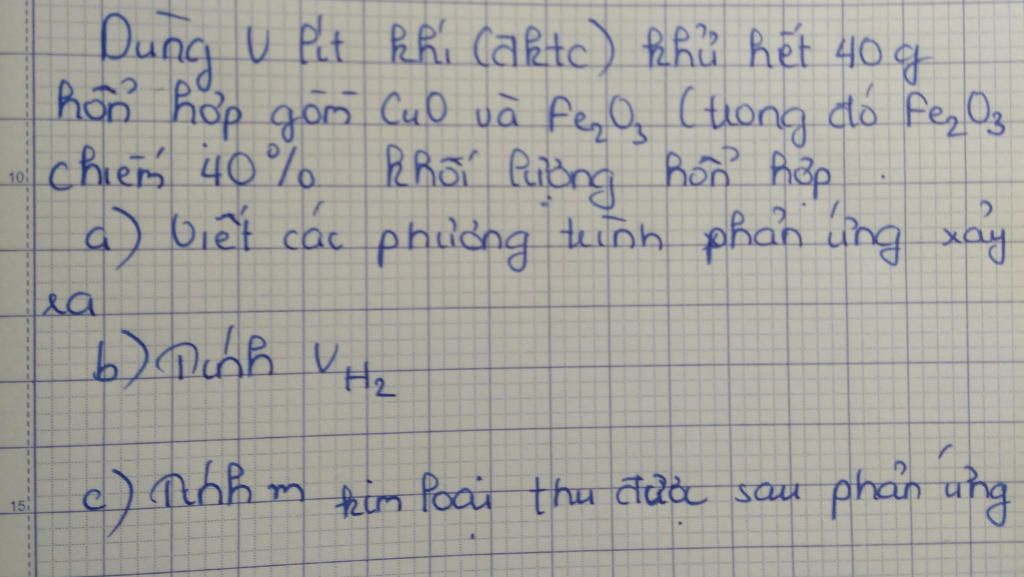 Dùng V lít khí (đktc) khử hết 40 g
hỗn hợp gồm CuO và Fe₂O₃ (trong đó Fe₂O₃
chiếm 40% khối lượng hỗn hợp.
a) Viết các phương trình phản ứng xảy
ra
b) Tính V_H₂
c) Tính m kim loại thu được sau phản ứng
10
15